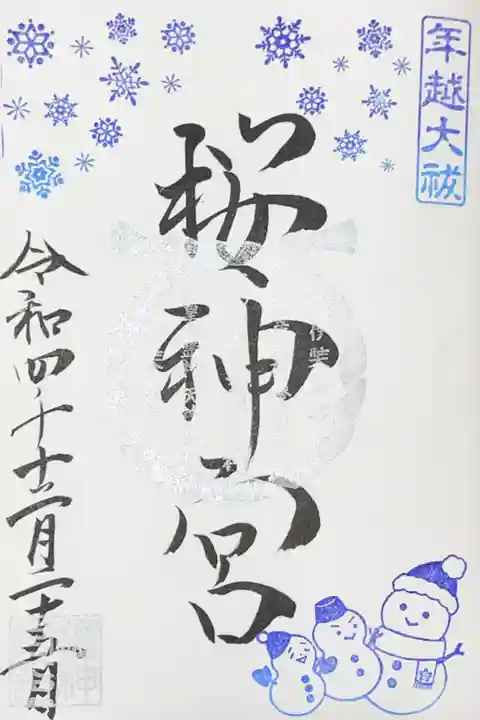 年越大祓
桜神宮
令和四年十二月二十三日
伊勢